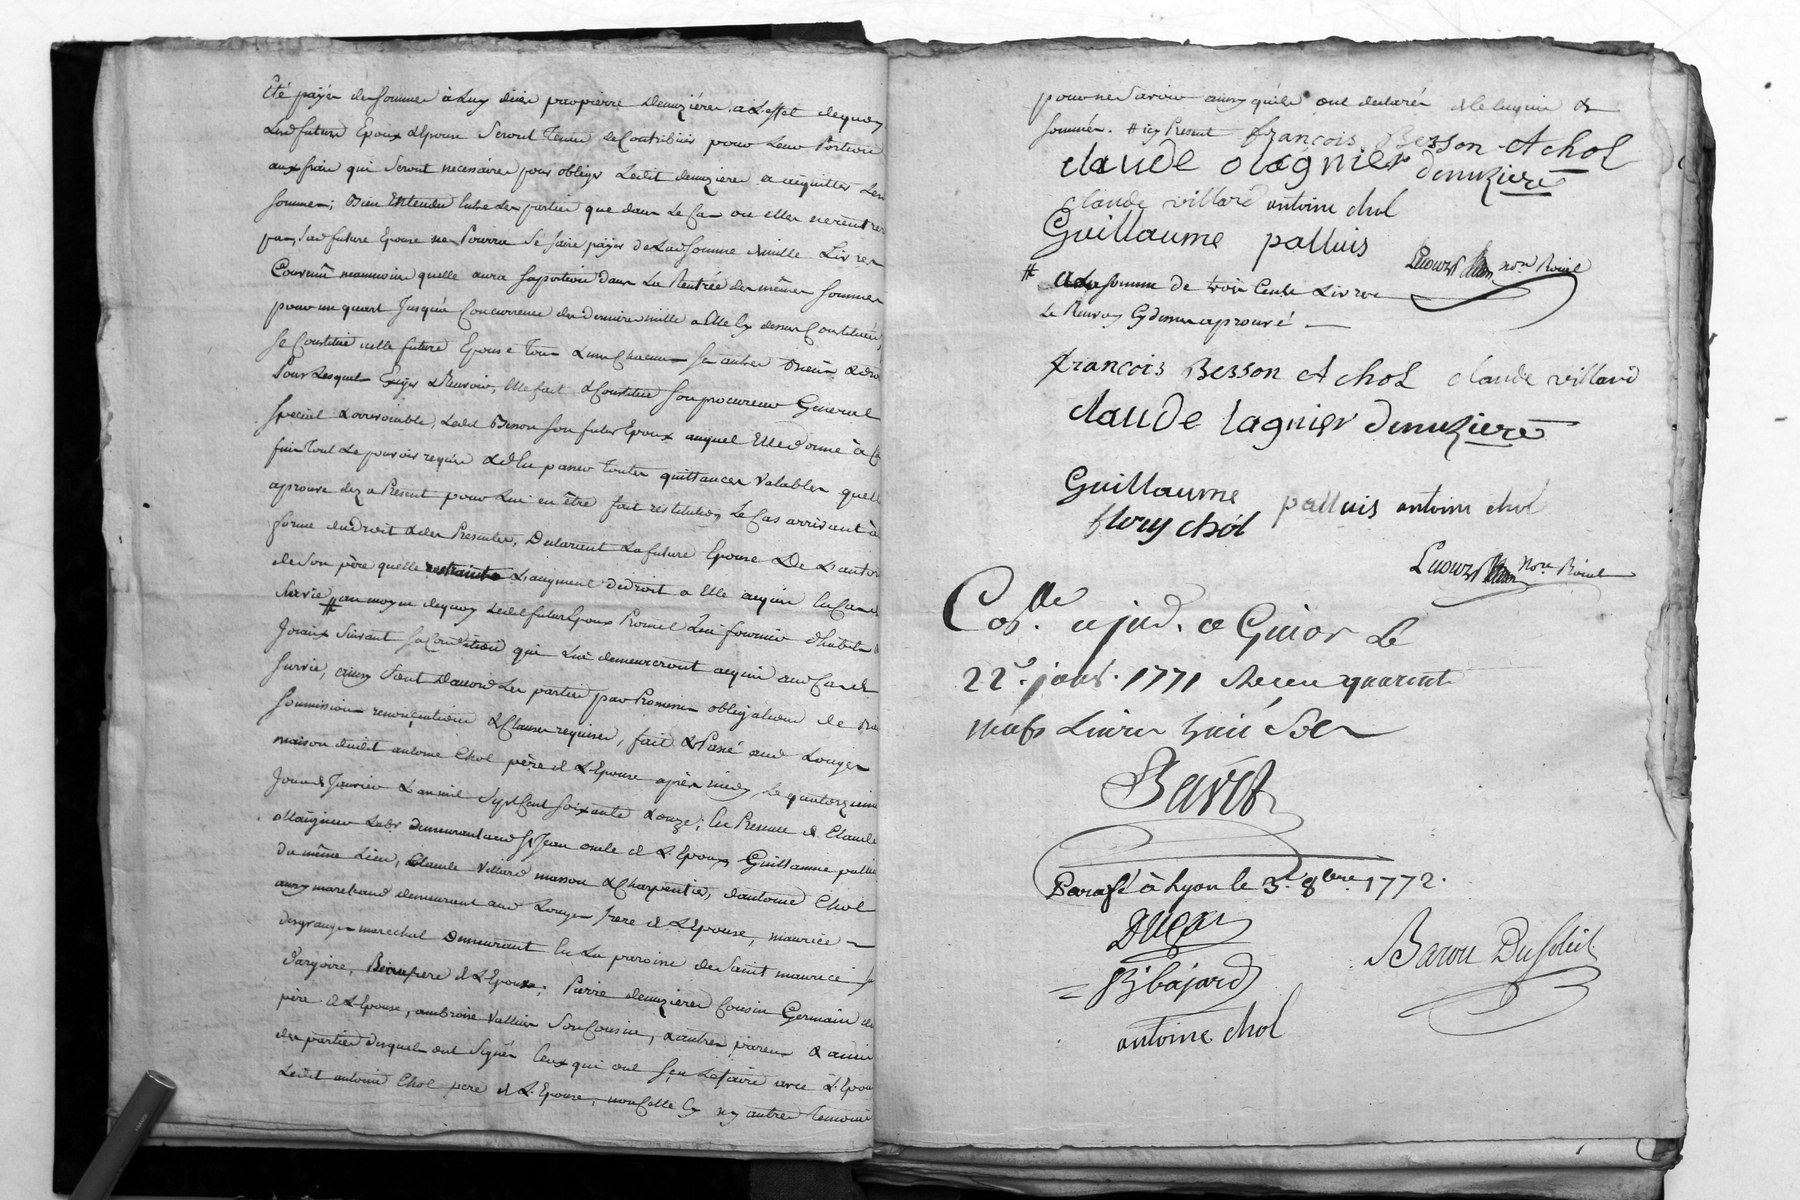 été payér des sommes à Luy dües par pierre demuziéres, a L'effet dequoy
Lesd futurs Epoux &Epouse Seront Tenus de Contribüer pour Leur Portion
aux frais qui Seront necessaires pour obliger Ledit demuziere a acquitter Les
sommes; Bien Entendu Entre Les parties que dans Le Cas ou elles ne rentrer
pas, Lad future Epouse ne Pourra Se faire payér de Lad somme de mille Livres
Convenu neanmoins quelle aura Sa portion dans La Rentrée des mêmes sommes
pour un quart Jusqu'a Concurrence du dernier mille a Elle Cy dessus Constitué,
Se Constitüe icelle future Epouse Tous & uns Chacuns Ses autres Biens & dro
Pour Lesquels Exiger & Recevoir, Elle fait & Constitue Son procureur General
Special & irrevocable, Ledit Besson Son futur Epoux auquel Elle donne à Ce
fin Tout Le pouvoir requis & d'En passer Toutes quittances Valables quell
aprouve dez a Present pour Lui en être fait restitution Le Cas arrivant à
forme du droit & des Presentes, Declarent La future Epouse De L'autor
de Son père quelle L'augment de droit a Elle acquis En Cas de
Survie # au moyen dequoy Ledit futur Epoux Promet Lui fournir d'habits &
Joyaux Suivant Sa Condition qui Lui demeureront acquis aud Cas de
Survie, ainsy Sont D'accord Les parties par Promesses obligations de
Soumissions renonciations & Clauses requises, fait & Passé aud Longes
maison dudit antoine Chol père de L'Epouse après midy, Le quatorzieme
Jour de Janvier L'an mil Sept Cent Soixante & onze; En Presence de Claude
ollagnier Labr demeurant aud St Jean oncle de L'Epoux Guillaume pallui
du même Lieu, Claude Villard masson & Charpentier, d'antoine Chol
aussy marchand demeurant aud Longes frere de L'Epouse, maurice
desgranges marechal demeurant En La paroisse de Saint maurice S
Dargoire, Beaufrere de L'Epouse; Pierre demuzieres Cousin Germain du
père de L'Epouse, ambroise Vallier Son Cousin, & autres parens & amis
des parties desquels ont Signés Ceux qui ont Sçu Le faire avec L'Epoux
Ledit antoine Chol pere de L'Epouse, non Celle Cy ny autres Temoins
pour ne Savoir ainsy qu'ils ont declarés de ce enquis &
sommés. # icy Present françois Besson A chol
claude olagnier demuziere
Claude villard antoine chol
Guillaume palluis
# a La somme de trois Cents Livres
Le Renvoy Cy dessus aprouvé
françois Besson A chol claude villard
claude lagnier demuziere
Guillaume palluis antoine chol
flory chol
Coll. a Givor Le
22e janv. 1771 Receu quarente
neufs Livres huit Sols
Paraffé à Lyon le 3e 8bre 1772.
Dugas
Baron DuSoleil
antoine chol